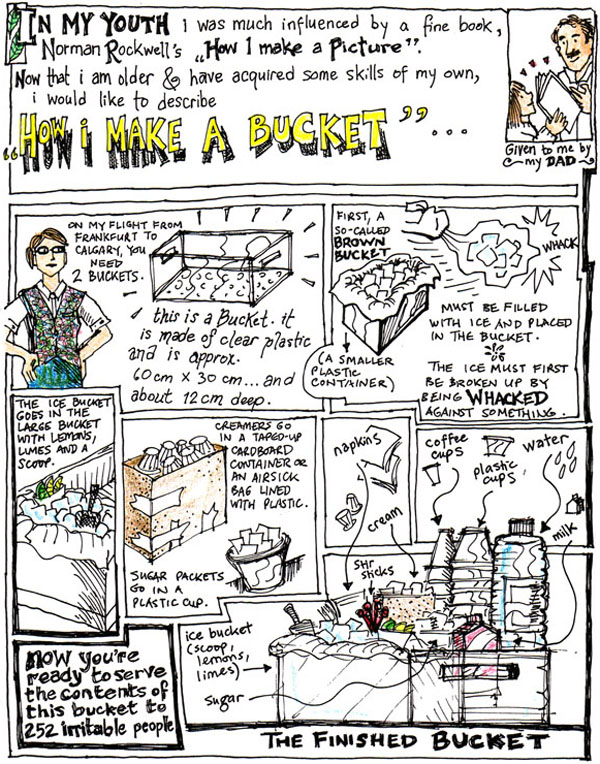 IN MY YOUTH i was much influenced by a fine book,
Norman Rockwell's „How I make a Picture".
Now that i am older & have acquired some skills of my own,
i would like to describe
"HOW i MAKE A BUCKET"...
Given to me by
my DAD
ON MY FLIGHT FROM
FRANKFURT TO
CALGARY, YOU
NEED
2 BUCKETS.
this is a Bucket. it
is made of clear plastic
and is approx.
60cm x 30cm...and
about 12cm deep.
FIRST, A
SO-CALLED
BROWN
BUCKET
WHACK
(A SMALLER
PLASTIC
CONTAINER)
MUST BE FILLED
WITH ICE AND PLACED
IN THE BUCKET.
THE ICE MUST FIRST
BE BROKEN UP BY
BEING WHACKED
AGAINST SOMETHING.
THE ICE BUCKET
GOES IN THE
LARGE BUCKET
WITH LEMONS,
LIMES AND A
SCOOP.
CREAMERS GO
IN A TAPED-UP
CARDBOARD
CONTAINER OR
AN AIRSICK
BAG LINED
WITH PLASTIC.
SUGAR PACKETS
GO IN A
PLASTIC CUP.
napkins
cream
coffee
cups
plastic
cups
water
milk
Stir
sticks
ice bucket
(scoop,
lemons,
limes)
sugar
NOW you're
ready to serve
the contents of
this bucket to
252 irritable people
THE FINISHED BUCKET